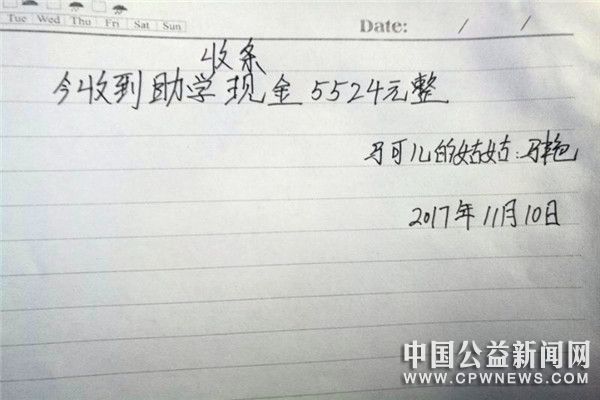 Tue Wed Thu Fri Sat Sun
Date: / /
收条
今收到助学现金5524元整
马可儿的姑姑:马艳
2017年11月10日
中国公益新闻网
WWW.CPWNEWS.COM